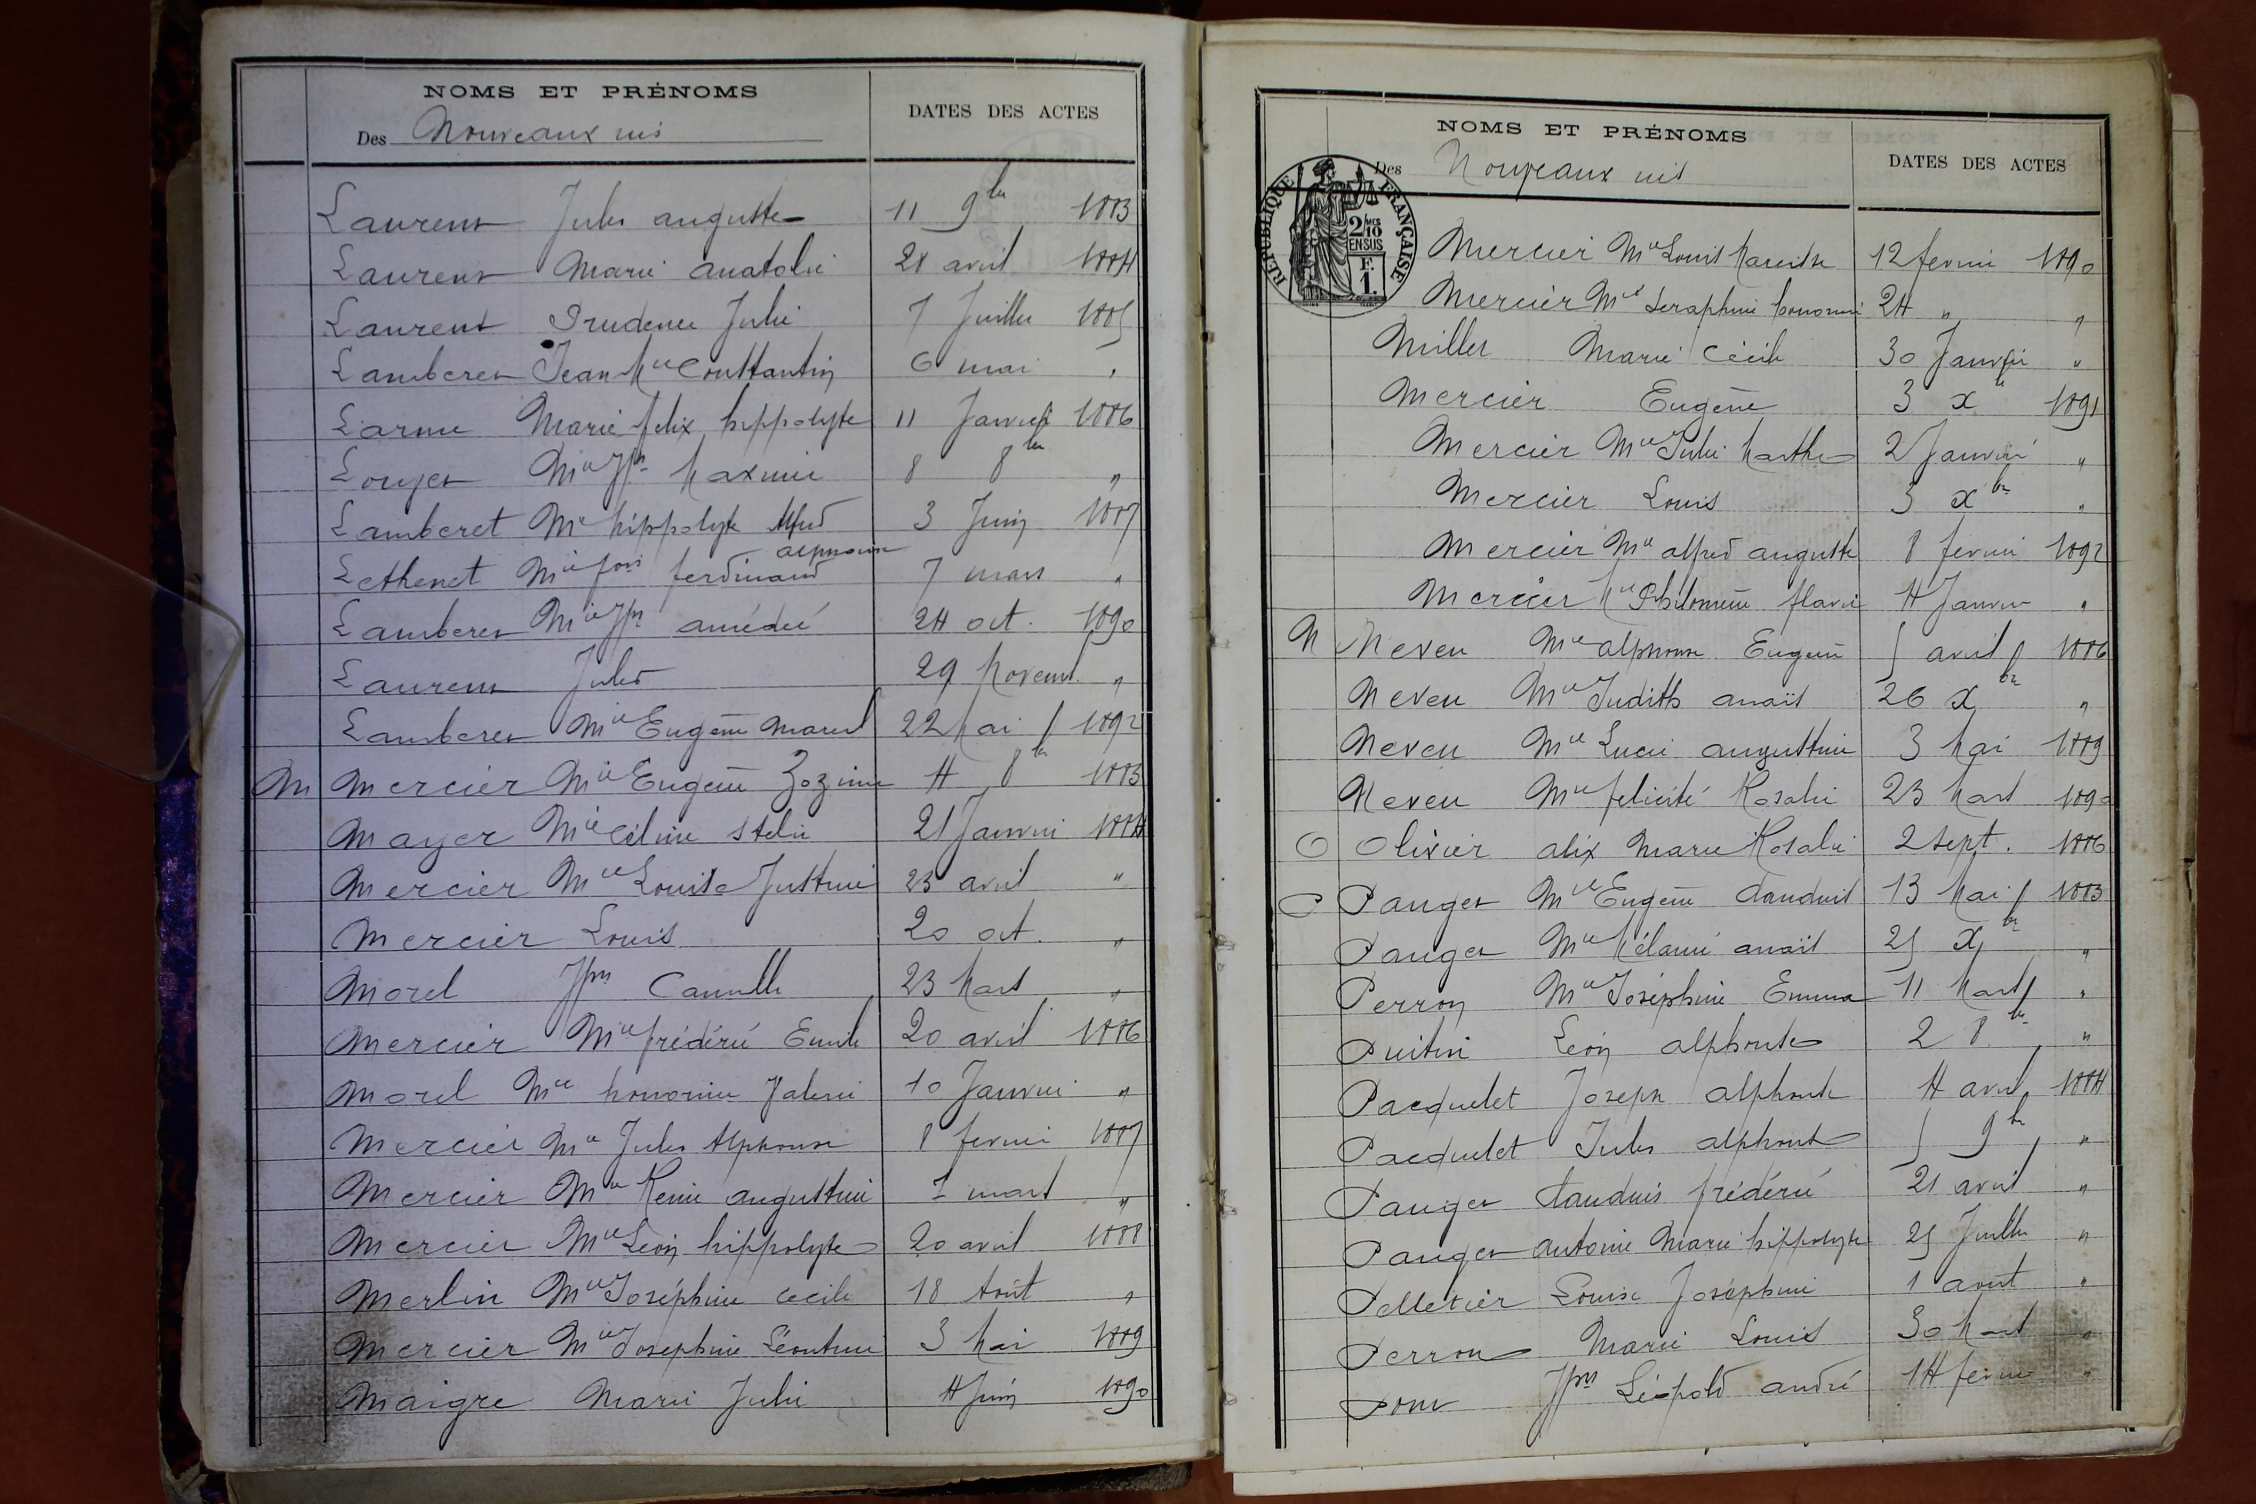 NOMS ET PRÉNOMS
Des Nouveaux nés
DATES DES ACTES
Laurent Jules auguste 11 9bre 1883
Laurent Marie anatolie 28 avril 1884
Laurent Prudence Julie 7 Juillet 1885
Lamberet Jean Mie Constantin 6 mai "
Larme Marie felix hippolyte 11 Janvier 1886
Louyet Mie Jph Maximie 8 8bre "
Lamberet Mie hippolyte Alfred 3 Juin 1887
alphonse
Lethenet Mie fois ferdinand 7 mars "
Lamberet Mie Jph amédée 24 oct. 1890
Laurent Jules 29 Novemb. "
Lamberet Mie Eugène Marcel 22 Mai 1892
M Mercier Mie Eugène Zozime 4 8bre 1883
Mayer Mie Céline Stelie 21 Janvier 1884
Mercier Mie Louise Justine 23 avril "
Mercier Louis 20 oct. "
Morel Jph Camille 23 Mars "
Mercier Mie frédéric Emile 20 avril 1886
Morel Mie honorine Valerie 10 Janvier "
Mercier Mie Jules Alphonse 8 fevrier 1887
Mercier Mie Renie augustine 1 mars "
Mercier Mie Léon hippolyte 20 avril 1888
Merlin Mie Joséphine Cecile 18 Août "
Mercier Mie Joséphine Léontine 3 Mai 1889
Maigre Marie Julie 4 Juin 1890
NOMS ET PRÉNOMS
Des Nouveaux nés
DATES DES ACTES
RÉPUBLIQUE FRANÇAISE
2/10 EN SUS
F. 1.
Mercier Mie Louis Narcisse 12 fevrier 1890
Mercier Mie Seraphine honorine 24 " "
Millet Marie Cécile 30 Janvier "
Mercier Eugène 3 xbre 1891
Mercier Mie Julie Marthe 2 Janvier "
Mercier Louis 3 xbre "
Mercier Mie alfred auguste 8 fevrier 1892
Mercier Mie Philomène flavie 4 Janvier "
N Neveu Mie alphonse Eugène 5 avril 1886
Neveu Mie Judith anaïs 26 xbre "
Neveu Mie Lucie augustine 3 Mai 1889
Neveu Mie felicité Rosalie 23 Mars 1890
O Olivier alix Marie Rosalie 2 sept. 1886
P Panget Mie Eugène Claudius 13 Mai 1883
Panget Mie Mélanie anaïs 25 xbre "
Perron Mie Joséphine Emma 11 Mars "
Léon alphonse 2 8bre "
Pacquelet Joseph alphonse 4 avril 1884
Pacquelet Jules alphonse 5 9bre "
Panget Claudius frédéric 21 avril "
Panget antoine Marie hippolyte 25 Juillet "
Pelletier Louise Joséphine 1 août "
Perron Marie Louis 30 Mars "
Jph Léopold andré 14 fevrier "